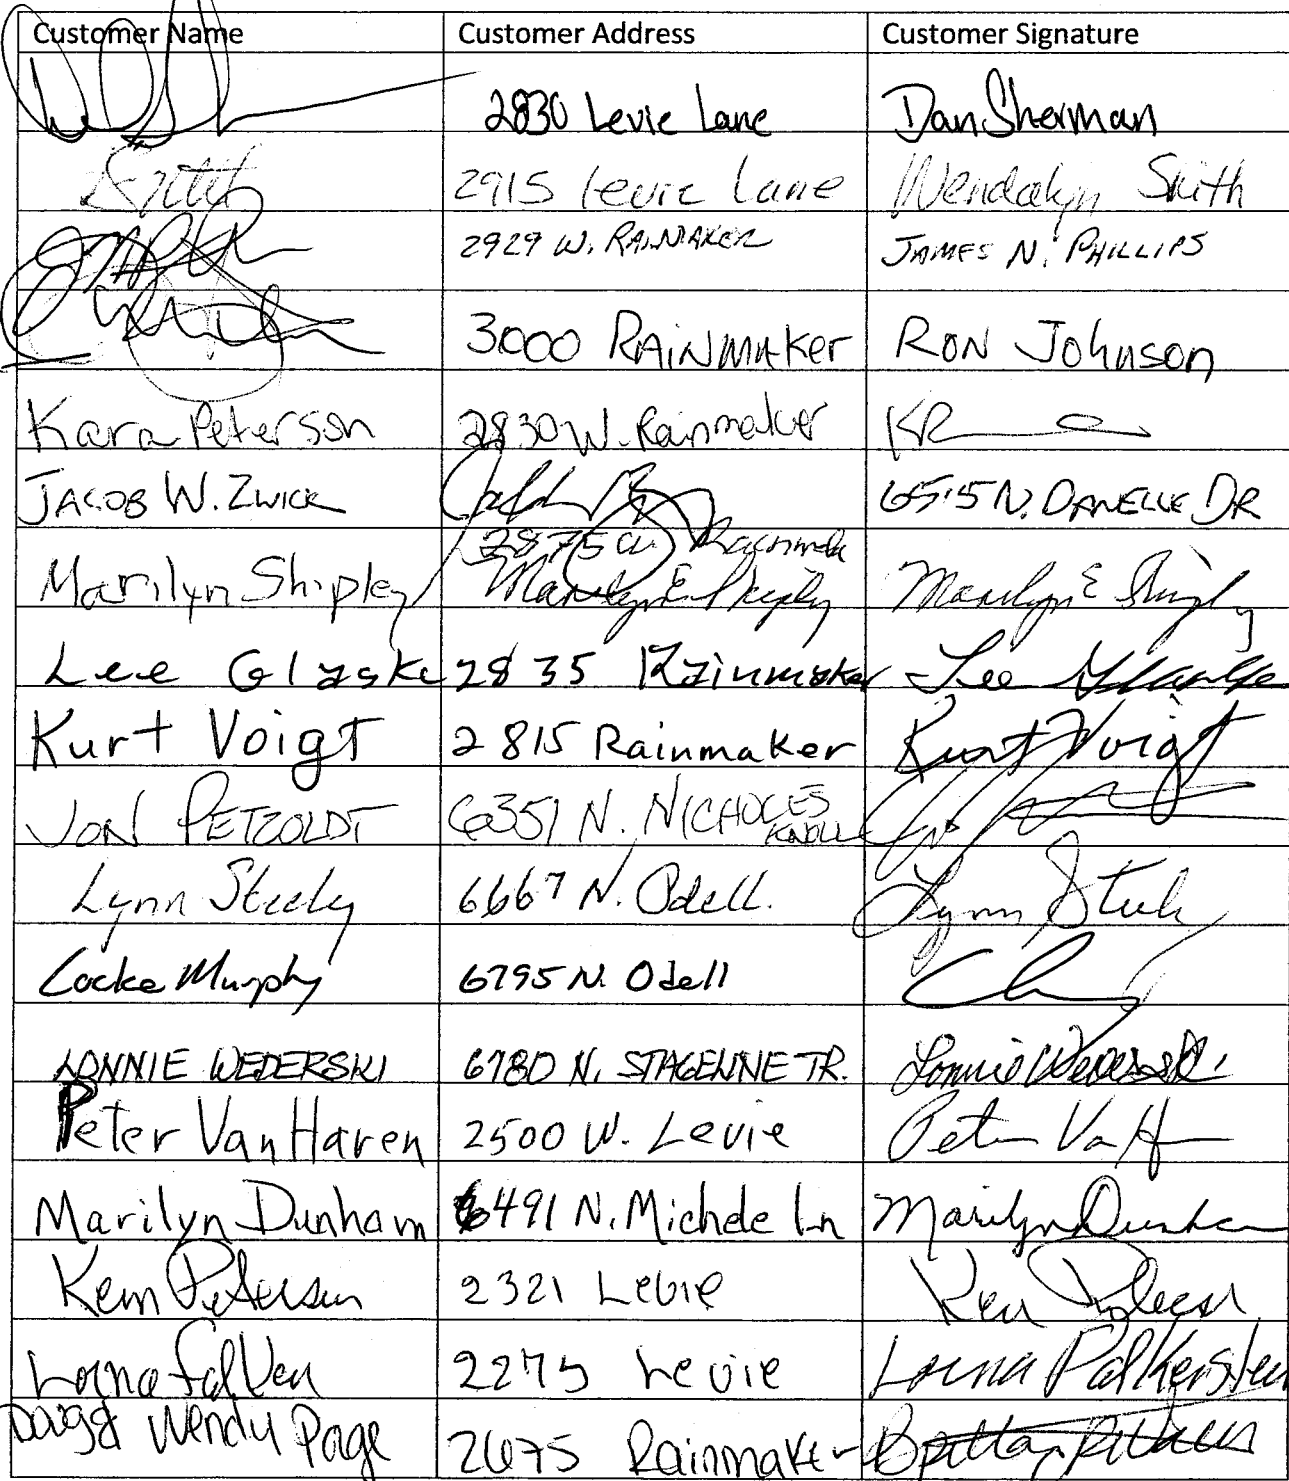 Customer Name Customer Address Customer Signature
2830 Levie Lane Dan Sherman
2915 Levie Lane Wendalyn Smith
2929 W. RAINMAKER JAMES N. PHILLIPS
3000 RAINMAKER RON JOHNSON
Kara Peterson 2830 W. Rainmaker
JACOB W. ZWICK 6515 N. DANELLE DR
2875 W. Rainmak
Marilyn Shipley Marilyn E Shipley Marilyn E Shipley
Lee Glaske 2835 Rainmaker Lee Glaske
Kurt Voigt 2815 Rainmaker Kurt Voigt
JON PETZOLDT 6351 N. NICHOLES
KNOLL
Lynn Steely 6667 N. Odell. Lynn Steely
Locke Murphy 6795 N. Odell
LONNIE WEDERSKI 6780 N. STAGELINE TR. Lonnie Wederski
Peter VanHaren 2500 W. Levie Peter Va H
Marilyn Dunham 6491 N. Michele Ln Marilyn Dunham
Ken Petersen 2321 Levie Ken Petersen
Lorna 2275 Levie Lorna
Doug & Wendy Page 2675 Rainmaker